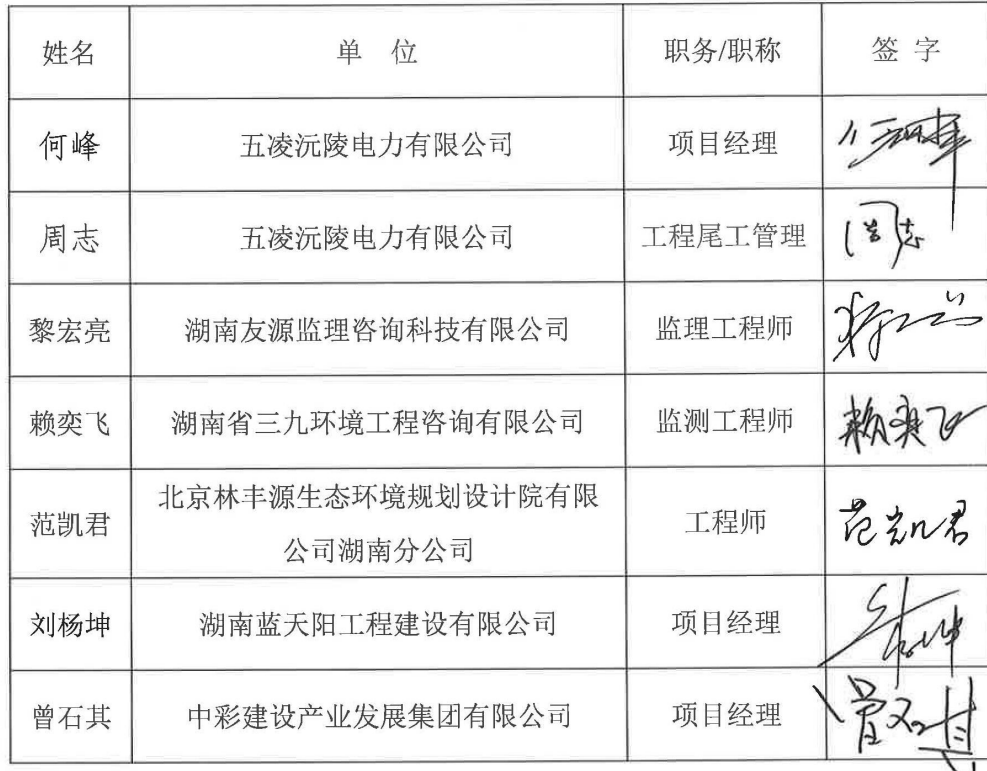 姓名 单 位 职务/职称 签 字
何峰 五凌沅陵电力有限公司 项目经理
周志 五凌沅陵电力有限公司 工程尾工管理 周志
黎宏亮 湖南友源监理咨询科技有限公司 监理工程师
赖奕飞 湖南省三九环境工程咨询有限公司 监测工程师 赖奕飞
范凯君 北京林丰源生态环境规划设计院有限 工程师 范凯君
公司湖南分公司
刘杨坤 湖南蓝天阳工程建设有限公司 项目经理
曾石其 中彩建设产业发展集团有限公司 项目经理 曾石其